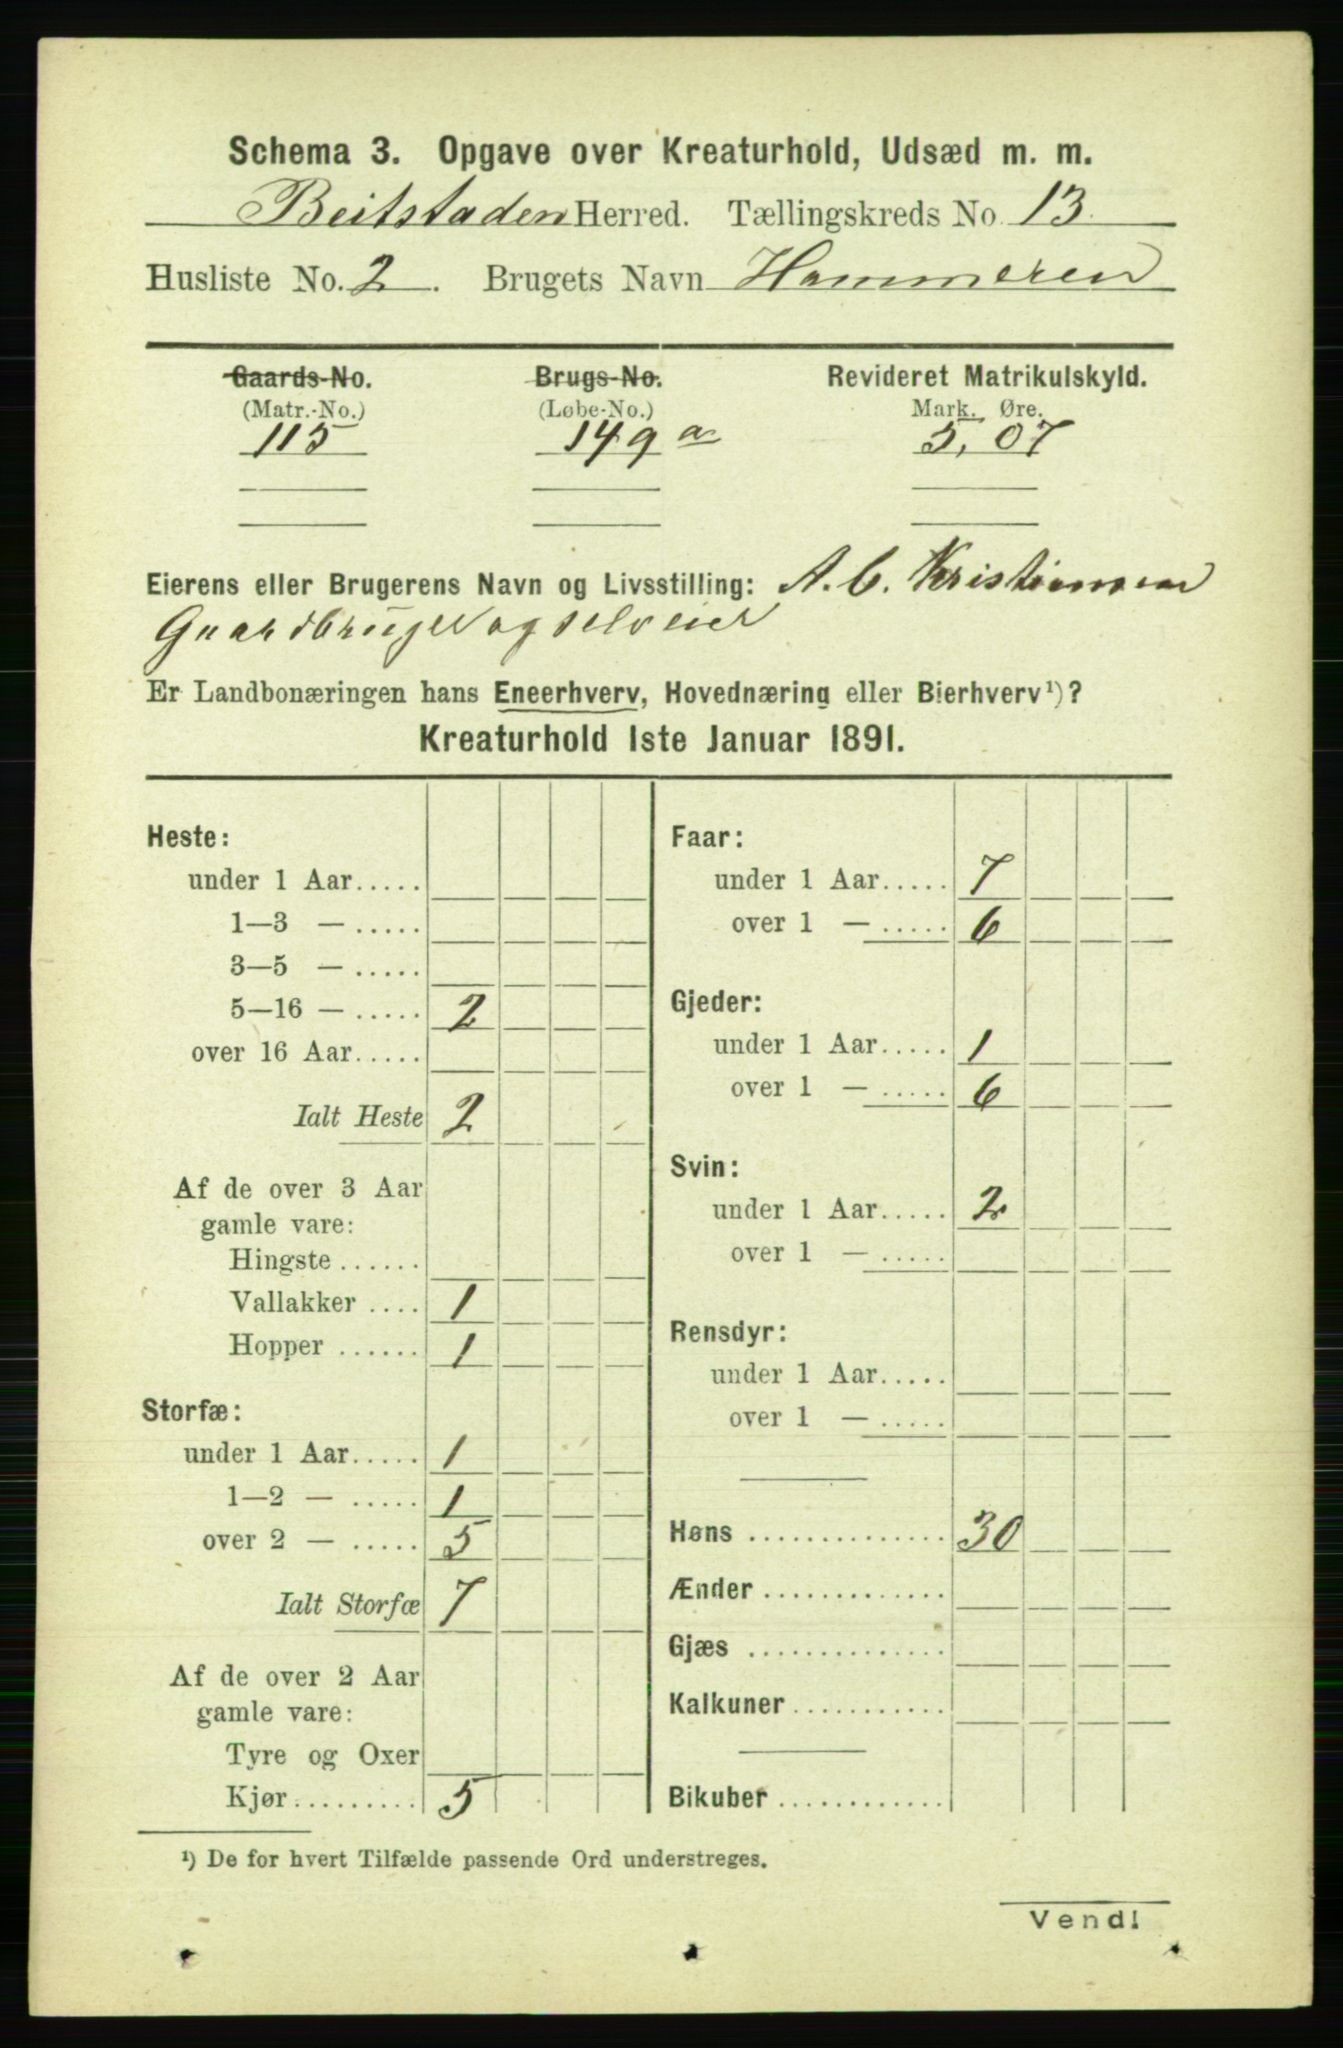 Schema 3. Opgave over Kreaturhold, Udsæd m. m.
Beitstaden Herred. Tællingskreds No. 13.
Husliste No. 2. Brugets Navn Hammeren
Gaards-No. Brugs-No. Revideret Matrikulskyld.
(Matr.-No.) (Løbe-No.) Mark. Øre.
115 149 a 5,07
Eierens eller Brugerens Navn og Livsstilling: A. C. Kristiansen
Gaardbruger og selveier
Er Landbonæringen hans Eneerhverv, Hovednæring eller Bierhverv¹)?
Kreaturhold 1ste Januar 1891.
Heste:
under 1 Aar.....
1—3 — .....
3—5 — .....
5—16 — ..... 2
over 16 Aar.....
Ialt Heste 2
Af de over 3 Aar
gamle vare:
Hingste ......
Vallakker .... 1
Hopper ...... 1
Storfæ:
under 1 Aar..... 1
1—2 — ..... 1
over 2 — ..... 5
Ialt Storfæ 7
Af de over 2 Aar
gamle vare:
Tyre og Oxer
Kjør......... 5
Faar:
under 1 Aar..... 7
over 1 — ..... 6
Gjeder:
under 1 Aar..... 1
over 1 — ..... 6
Svin:
under 1 Aar..... 2
over 1 — .....
Rensdyr:
under 1 Aar.....
over 1 — .....
Høns .............. 30
Ænder .............
Gjæs ..............
Kalkuner...........
Bikuber ............
¹) De for hvert Tilfælde passende Ord understreges.
Vend!